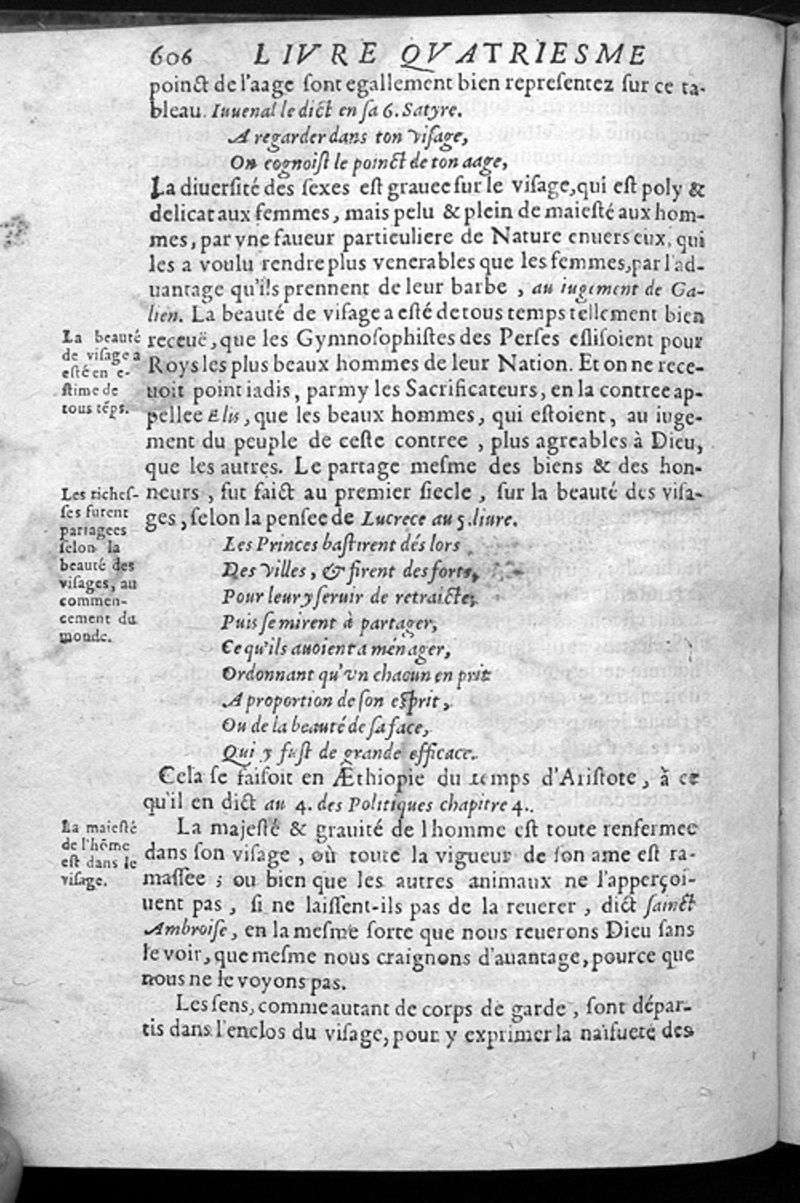 606 LIVRE QVATRIESME
poinct de l'aage sont egallement bien representez sur ce ta-
bleau. Iuuenal le dict en sa 6. Satyre.
A regarder dans ton visage,
On cognoist le poinct de ton aage,
La diuersité des sexes est grauee sur le visage, qui est poly &
delicat aux femmes, mais pelu & plein de maiesté aux hom-
mes, par vne faueur particuliere de Nature enuers eux, qui
les a voulu rendre plus venerables que les femmes, par l'ad-
uantage qu'ils prennent de leur barbe, au iugement de Ga-
lien. La beauté de visage a esté de tous temps tellement bien
receuë, que les Gymnosophistes des Perses eslisoient pour
Roys les plus beaux hommes de leur Nation. Et on ne rece-
uoit point iadis, parmy les Sacrificateurs, en la contree ap-
pellee Elis, que les beaux hommes, qui estoient, au iuge-
ment du peuple de ceste contree, plus agreables à Dieu,
que les autres. Le partage mesme des biens & des hon-
neurs, fut faict au premier siecle, sur la beauté des visa-
ges, selon la pensee de Lucrece au 5. liure.
La beauté
de visage a
esté en e-
stime de
tous tẽps.
Les riches-
ses furent
partagees
selon la
beauté des
visages, au
commen-
cement du
monde.
Les Princes bastirent dés lors
Des villes, & firent des forts,
Pour leur y seruir de retraicte;
Puis se mirent à partager,
Ce qu'ils auoient a ménager,
Ordonnant qu'vn chacun en prit
A proportion de son esprit,
Ou de la beauté de sa face,
Qui y fust de grande efficace.
Cela se faisoit en Æthiopie du temps d'Aristote, à ce
qu'il en dict au 4. des Politiques chapitre 4..
La majesté & grauité de lhomme est toute renfermee
dans son visage, où toute la vigueur de son ame est ra-
massee; ou bien que les autres animaux ne l'apperçoi-
uent pas, si ne laissent-ils pas de la reuerer, dict sainct
Ambroise, en la mesme sorte que nous reuerons Dieu sans
le voir, que mesme nous craignons d'auantage, pource que
nous ne le voyons pas.
La maiesté
de l'hõme
est dans le
visage.
Les sens, comme autant de corps de garde, sont dépar-
tis dans l'enclos du visage, pour y exprimer la naïfueté des